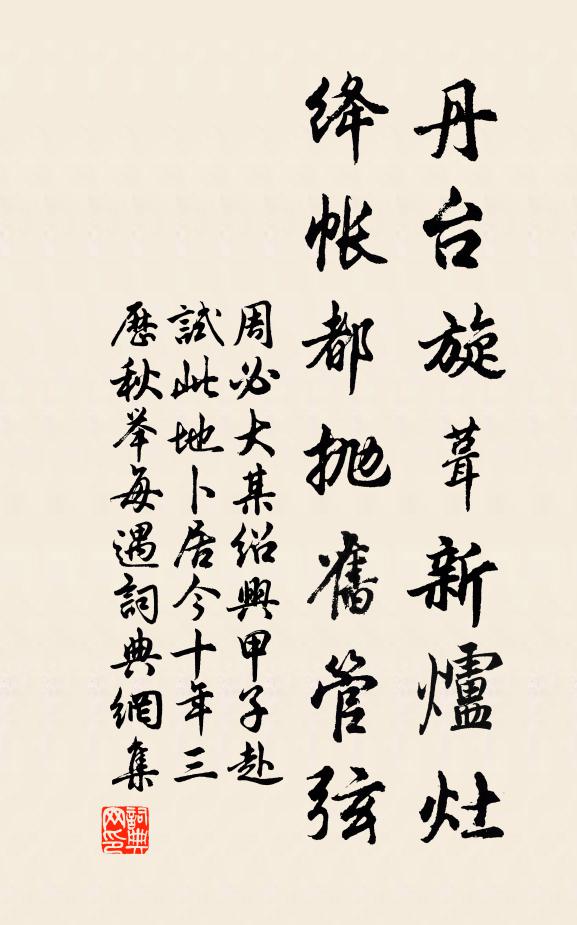 丹台旋葺新爐灶
绛帐都抛舊管弦
周必大某紹興甲子赴
試此地卜居今十年三
歷秋举每遇詞典網集
詞典
网印